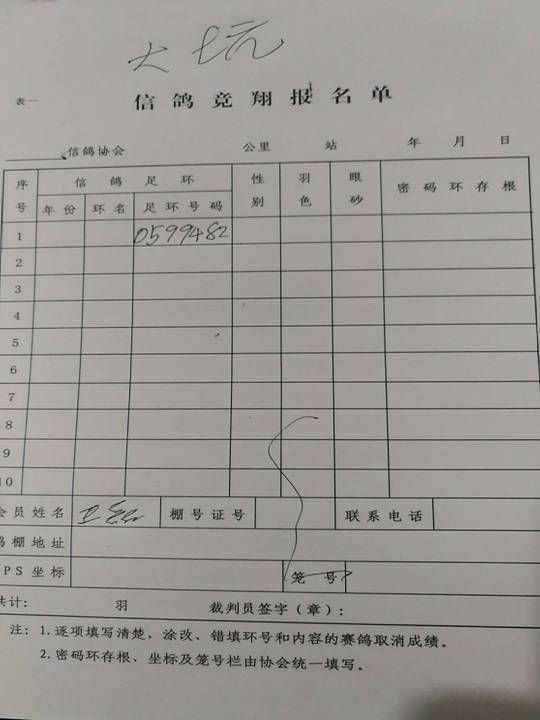 大坑
表一
信鸽竞翔报名单
信鸽协会 公里 站 年 月 日
序号 信鸽足环 性别 羽色 眼砂 密码环存根
年份 环名 足环号码
1 0599482
2
3
4
5
6
7
8
9
10
会员姓名 棚号证号 联系电话
鸽棚地址
GPS坐标 笼号
共计: 羽 裁判员签字（章）:
注: 1.逐项填写清楚，涂改、错填环号和内容的赛鸽取消成绩。
2.密码环存根、坐标及笼号栏由协会统一填写。